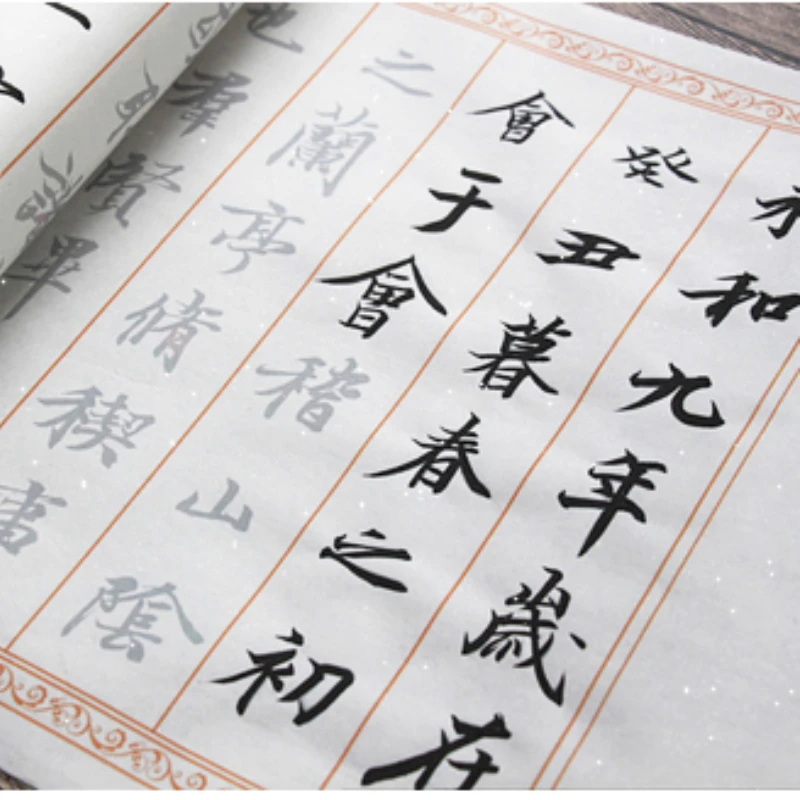 永和九年歲在
癸丑暮春之初
會于會稽山陰
之蘭亭脩稧事
也羣賢畢